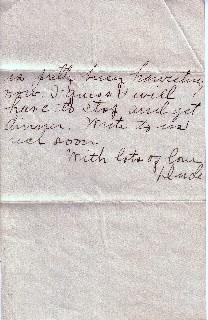 is pretty busy harvesting
now. I guess I will
have to stop and get
dinner. Write to us
real soon.
With lots of love,